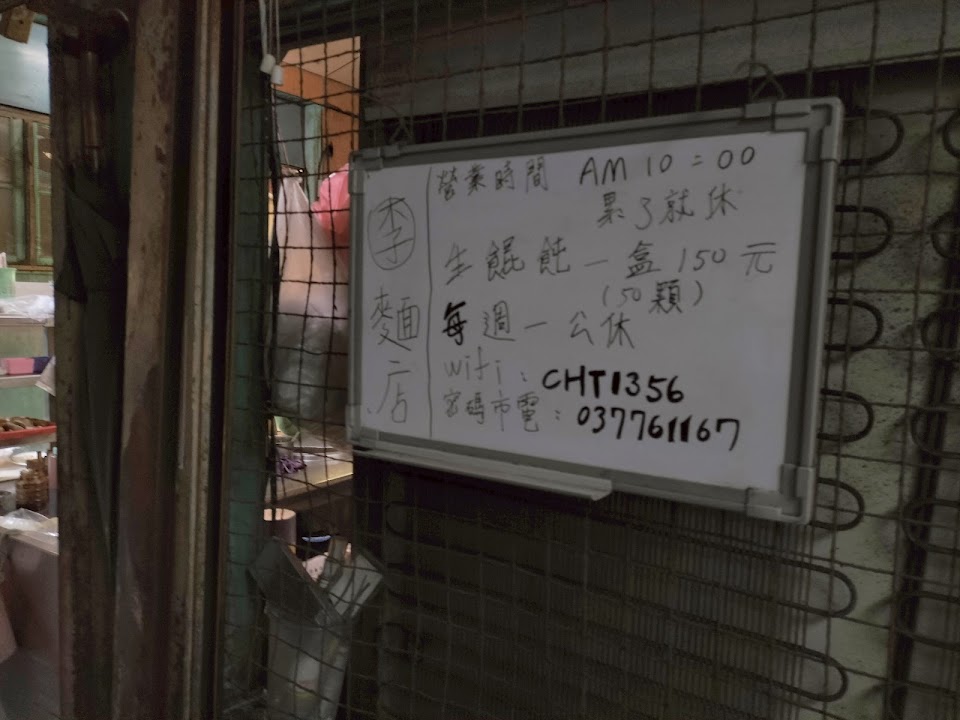 李麵店
營業時間 AM 10:00
累了就休
生餛飩一盒 150元
(50顆)
每週一 公休
wifi: CHT1356
密碼市電: 037761167